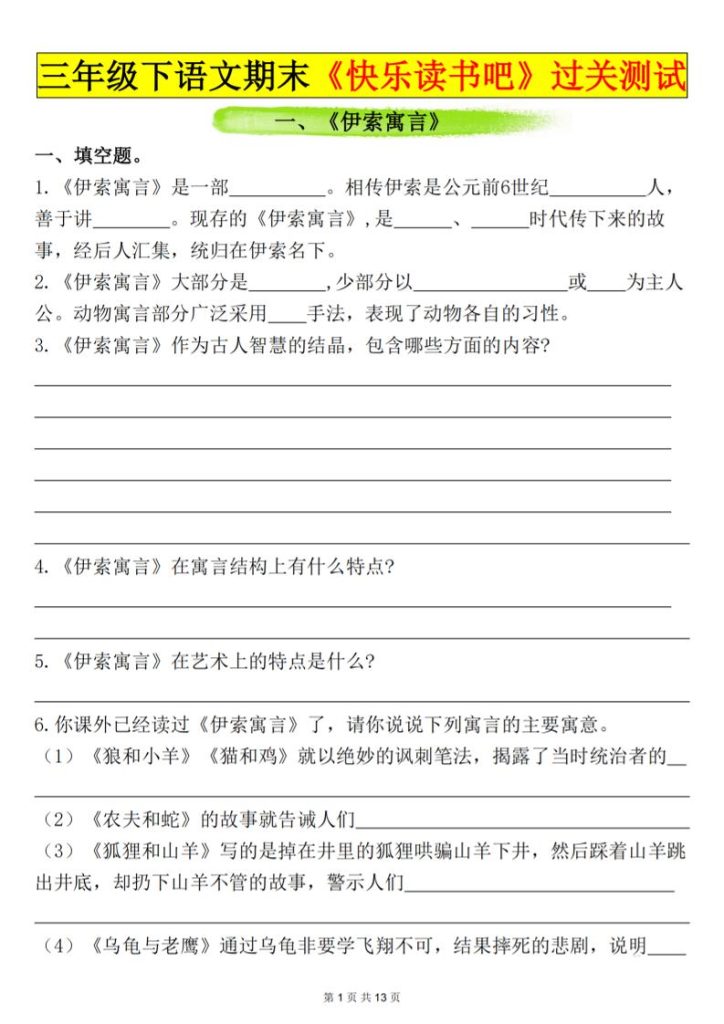 三年级下语文期末《快乐读书吧》过关测试
一、《伊索寓言》
一、填空题。
1.《伊索寓言》是一部__________。相传伊索是公元前6世纪__________人，
善于讲________。现存的《伊索寓言》,是______、______时代传下来的故
事，经后人汇集，统归在伊索名下。
2.《伊索寓言》大部分是________,少部分以________________或____为主人
公。动物寓言部分广泛采用____手法，表现了动物各自的习性。
3.《伊索寓言》作为古人智慧的结晶，包含哪些方面的内容?
4.《伊索寓言》在寓言结构上有什么特点?
5.《伊索寓言》在艺术上的特点是什么?
6.你课外已经读过《伊索寓言》了，请你说说下列寓言的主要寓意。
（1）《狼和小羊》《猫和鸡》就以绝妙的讽刺笔法，揭露了当时统治者的__
（2）《农夫和蛇》的故事就告诫人们__________________________________
（3）《狐狸和山羊》写的是掉在井里的狐狸哄骗山羊下井，然后踩着山羊跳
出井底，却扔下山羊不管的故事，警示人们____________________________
（4）《乌龟与老鹰》通过乌龟非要学飞翔不可，结果摔死的悲剧，说明____
第 1 页 共 13 页